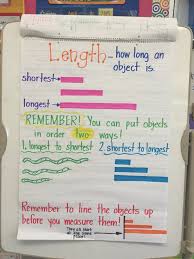 Length - how long an
object is.
shortest
longest
REMEMBER! You can put objects
in order two ways!
1. longest to shortest 2. shortest to longest
Remember to line the objects up
before you measure them!
They all start
at the same